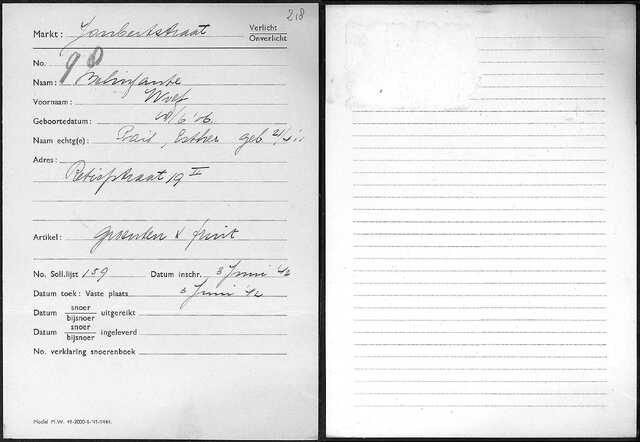 218
Markt: Joubertstraat Verlicht
Onverlicht
No. 98
Naam: Belinfante
Voornaam: Wolf
Geboortedatum: /6 '06.
Naam echtg(e): Esther geb. 21/4
Adres:
Retiefstraat 19 II
Artikel: groenten & fruit
No. Soll.lijst 159 Datum inschr. 3 Juni '42
Datum toek: Vaste plaats 3 Juni '42
Datum snoer
bijsnoer uitgereikt
Datum snoer
bijsnoer ingeleverd
No. verklaring snoerenboek
Model M.W.